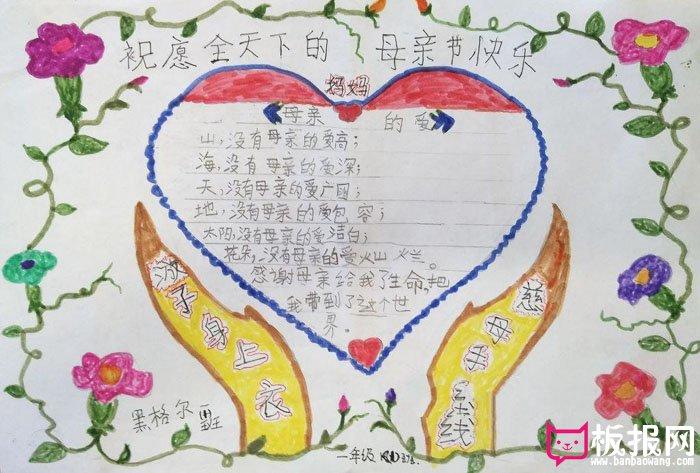 祝愿全天下的 母亲节快乐
妈妈
母亲 的 爱
山,没有母亲的爱高;
海,没有母亲的爱深;
天,没有母亲的爱广阔;
地,没有母亲的爱包 容;
太阳,没有母亲的爱洁白;
花朵,没有母亲的爱灿 烂。
感谢母亲给我了生命,把
我带到了这个世
界。
慈母手线
游子身上衣
黑格尔
一年级
板报网
www.banbaowang.com